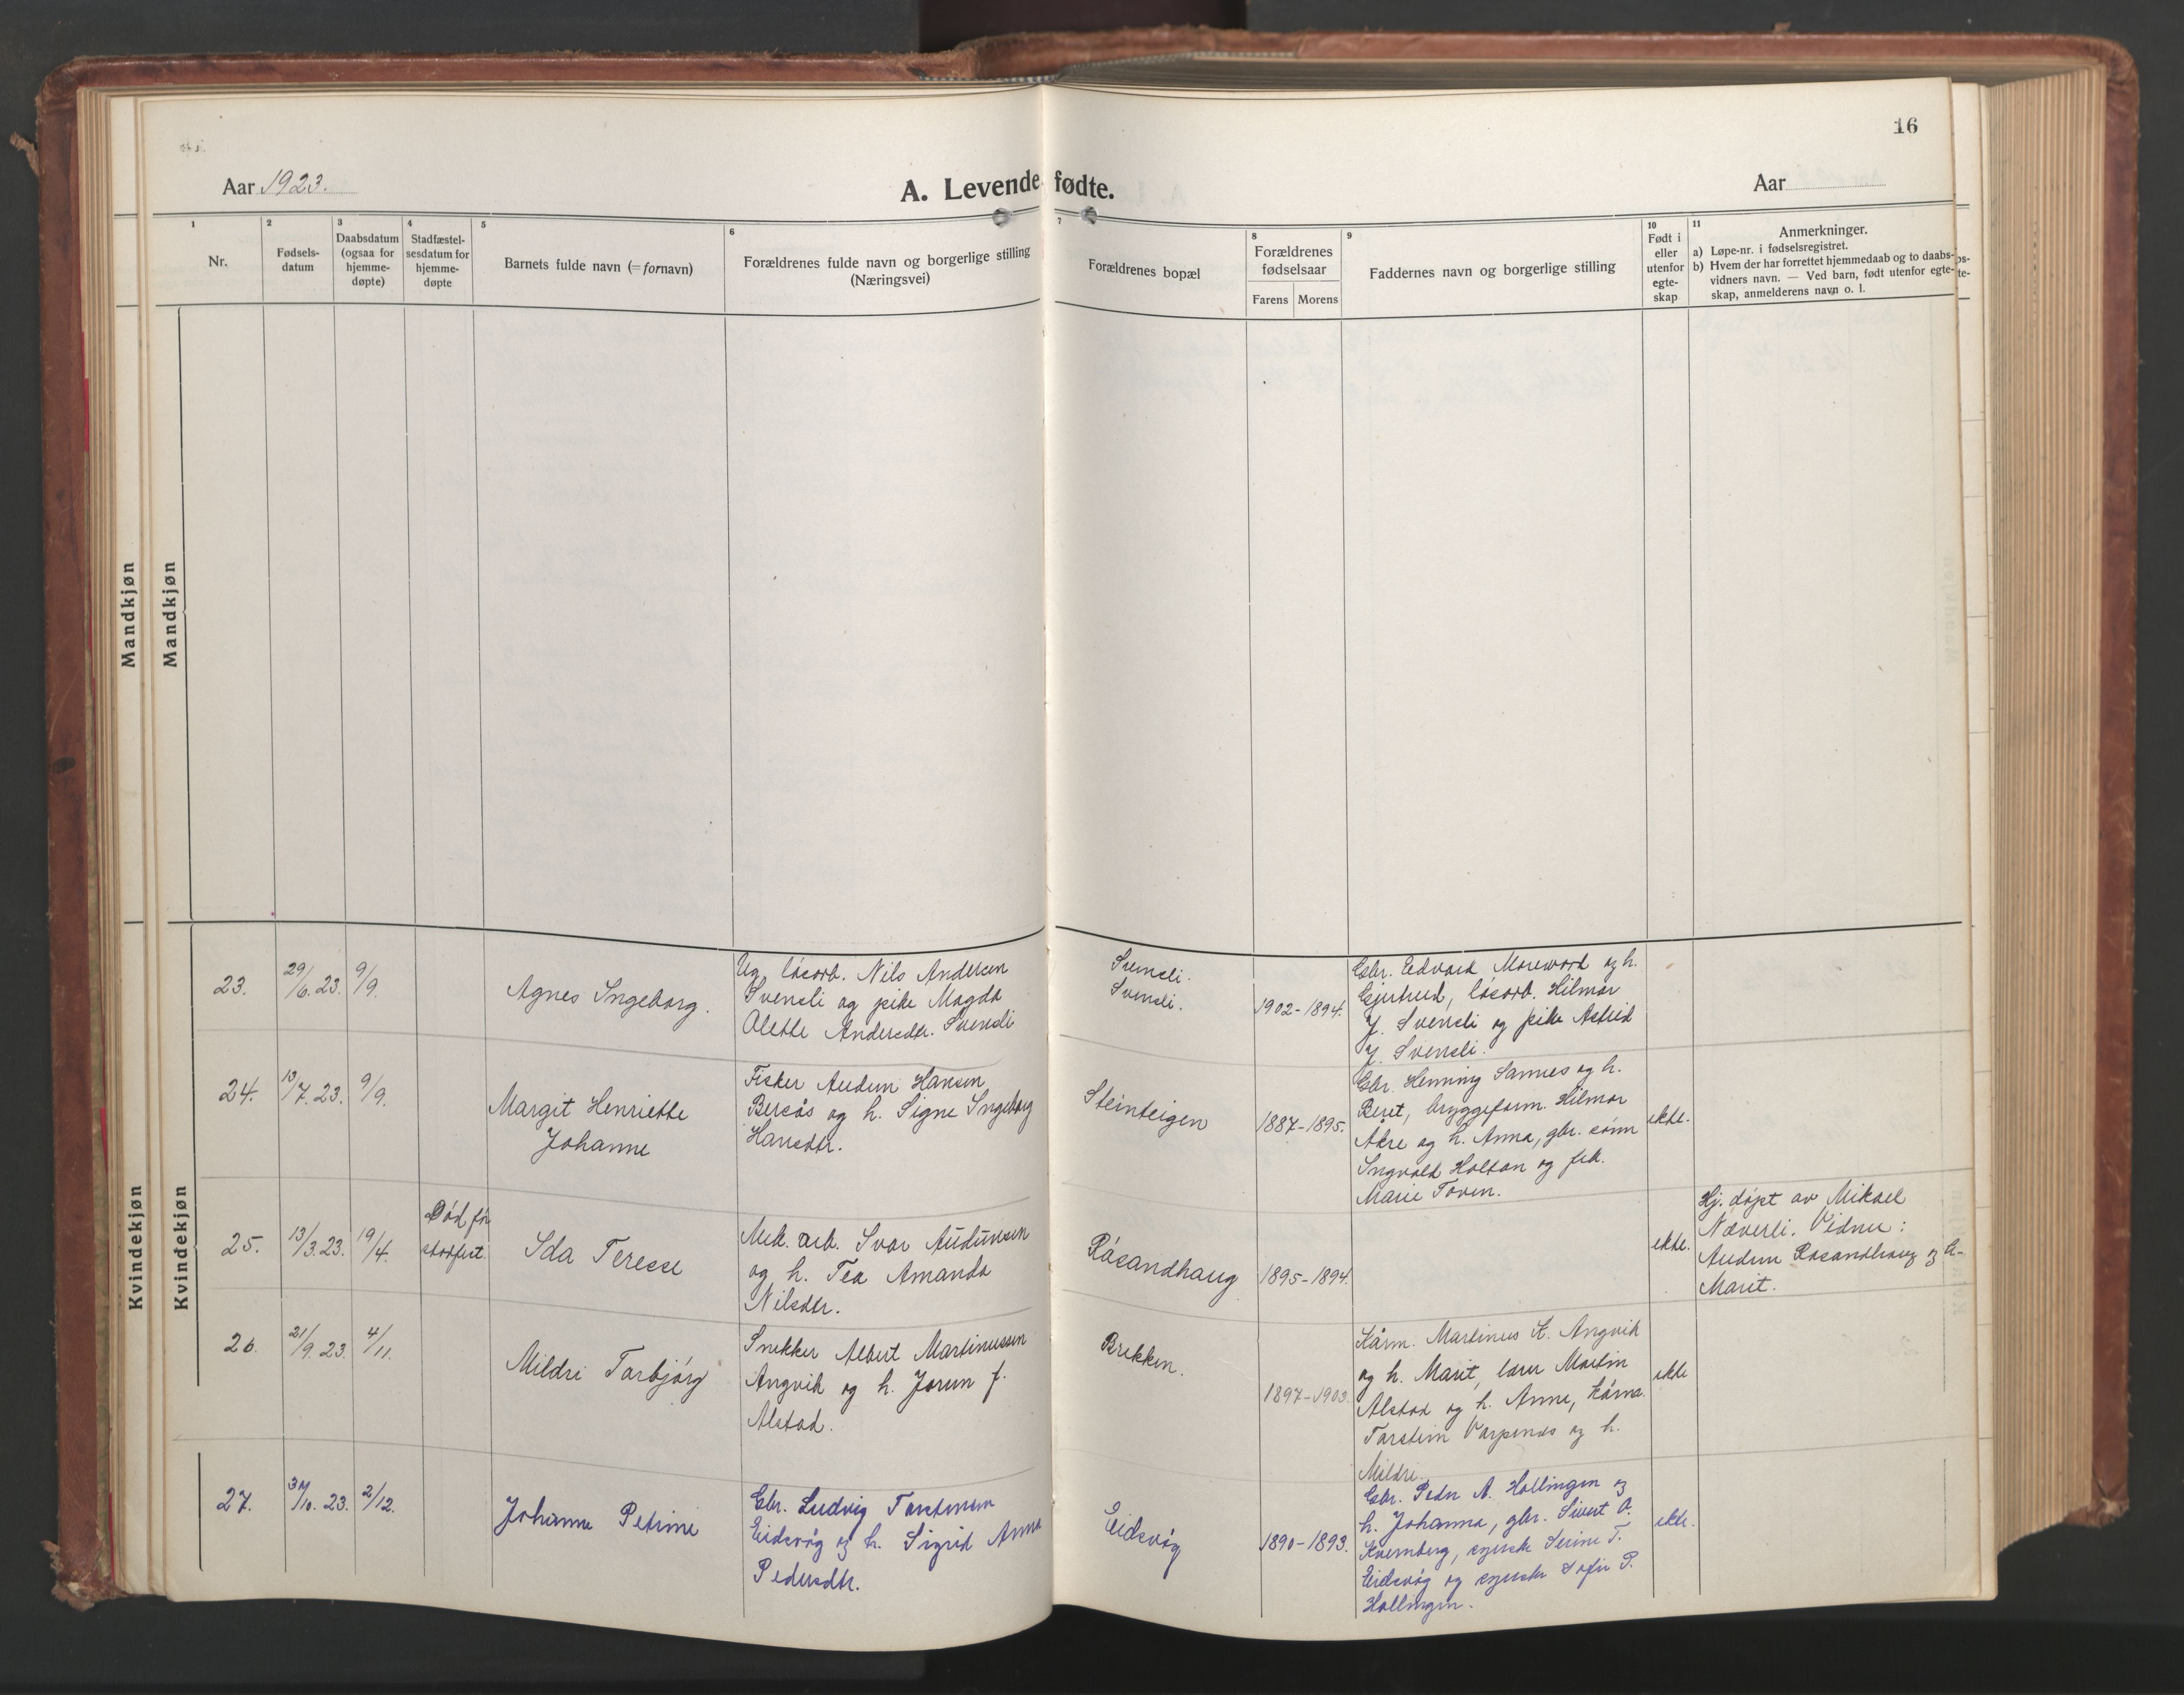 16
Aar 1923.
A. Levende fødte.
Aar
1
2
3
4
5
6
7
8
9
10
11
Nr.
Fødsels-
datum
Daabsdatum
(ogsaa for
hjemme-
døpte)
Stadfæstel-
sesdatum for
hjemme-
døpte
Barnets fulde navn (=fornavn)
Forældrenes fulde navn og borgerlige stilling
(Næringsvei)
Forældrenes bopæl
Forældrenes
fødselsaar
Farens
Morens
Faddernes navn og borgerlige stilling
Født i
eller
utenfor
egte-
skap
Anmerkninger.
a) Løpe-nr. i fødselsregistret.
b) Hvem der har forrettet hjemmedaab og to daabs-
vidners navn. — Ved barn, født utenfor egte-
skap, anmelderens navn o. l.
Mandkjøn
Mandkjøn
Kvindekjøn
Kvindekjøn
23.
29/6. 23.
9/9.
Agnes Ingeborg.
Ug. løsarb. Nils Andersen
Svensli og pike Magda
Olette Andersdtr. Svensli
Svensli.
Svensli.
1902-1894.
Gbr. Edvard Morevard og h.
Gjertrud, løsarb. Hilmar
J. Svensli og pike Astrid
J. Svensli.
24.
13/7. 23.
9/9.
Margit Henriette
Johanne
Fisker Audun Hansen
Bersås og h. Signe Ingeborg
Hansdtr.
Steinteigen
1887-1895.
Gbr. Henning Sannes og h.
Beret, bryggeform. Hilmar
Åkre og h. Anna, gbr. sønn
Ingvald Holtan og frk.
Marie Toven.
ekte.
25.
13/3. 23.
19/4.
Død før
stadfest
Ida Terese
Mek. arb. Ivar Audunsen
og h. Tea Amanda
Nilsdtr.
Røsandhaug
1895-1894.
ekte.
Hj. døpt av Mikael
Næverli. Vidner:
Audun Røsandhaug og h.
Marit.
26.
21/9. 23.
4/11.
Mildri Torbjørg
Snekker Albert Martinussen
Angvik og h. Jorun f.
Alstad.
Brekken.
1897-1903.
Kårm. Martinus K. Angvik
og h. Marit, lærer Martin
Alstad og h. Anne, kårm.
Torstein Varpenes og h.
Mildri.
ekte
27.
/10. 23.
2/12.
Johanne Petrine
Gbr. Ludvig Torstensen
Eidsvåg og h. Sigrid Anna
Pedersdtr.
Eidsvåg
1890-1893.
Gbr. Peder A. Hollingen og
h. Johanna, gbr. Sivert O.
Kvernberg, syerske Serine T.
Eidsvåg og syerske Sofie P.
Hollingen.
ekte.